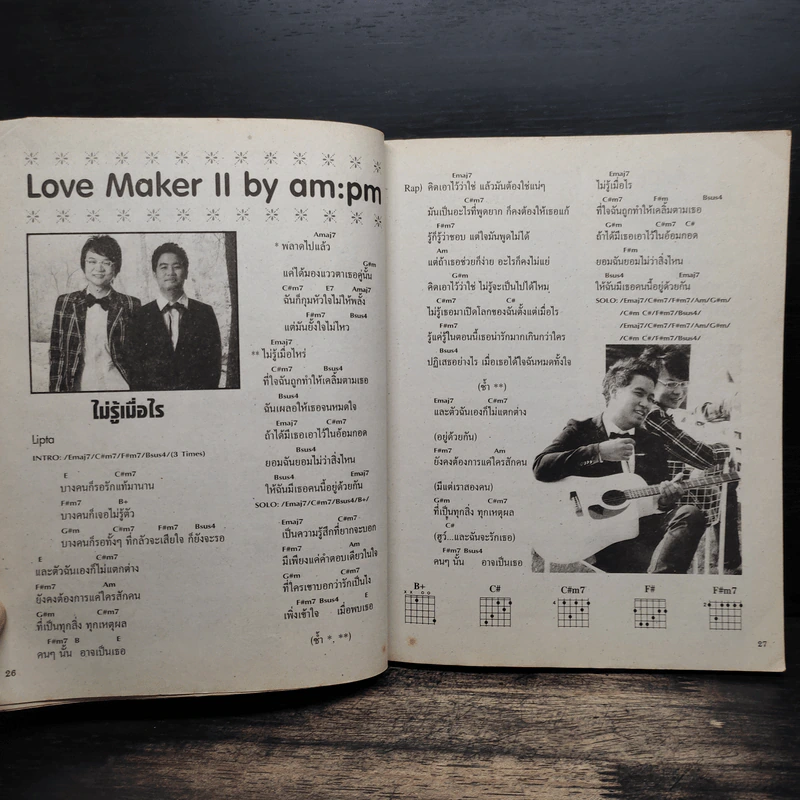 Love Maker II by am:pm
ไม่รู้เมื่อไร
Lipta
INTRO: /Emaj7/C#m7/F#m7/Bsus4/(3 Times)
E C#m7
บางคนก็รอรักแท้มานาน
F#m7 B+
บางคนก็เจอไม่รู้ตัว
G#m C#m7 F#m7 Bsus4
บางคนก็รอทั้งๆ ที่กลัวจะเสียใจ ก็ยังจะรอ
E C#m7
และตัวฉันเองก็ไม่แตกต่าง
F#m7 Am
ยังคงต้องการแค่ใครสักคน
G#m C#m7
ที่เป็นทุกสิ่ง ทุกเหตุผล
F#m7 B E
คนๆ นั้น อาจเป็นเธอ
26
Amaj7
* พลาดไปแล้ว
G#m
แค่ได้มองแววตาเธอคู่นั้น
C#m7 E7 Amaj7
ฉันก็กุมหัวใจไม่ให้พลั้ง
F#m7 Bsus4
แต่มันยั้งใจไม่ไหว
Emaj7
** ไม่รู้เมื่อไหร่
C#m7 Bsus4
ที่ใจฉันถูกทำให้เคลิ้มตามเธอ
Bsus4
ฉันเผลอให้เธอจนหมดใจ
Emaj7 C#m7
ถ้าได้มีเธอเอาไว้ในอ้อมกอด
Bsus4
ยอมฉันยอมไม่ว่าสิ่งไหน
Bsus4 Emaj7
ให้ฉันมีเธอคนนี้อยู่ด้วยกัน
SOLO: /Emaj7/C#m7/Bsus4/B+/
Emaj7 C#m7
เป็นความรู้สึกที่ยากจะบอก
F#m7 Am
มีเพียงแค่คำตอบเดียวในใจ
G#m C#m7
ที่ใครเขาบอกว่ารักเป็นไง
F#m7 Bsus4 E
เพิ่งเข้าใจ เมื่อพบเธอ
(ซ้ำ *, **)
Emaj7
Rap) คิดเอาไว้ว่าใช่ แล้วมันต้องใช่แน่ๆ
C#m7
มันเป็นอะไรที่พูดยาก ก็คงต้องให้เธอแก้
F#m7
รู้ก็รู้ว่าชอบ แต่ใจมันพูดไม่ได้
Am
แต่ถ้าเธอช่วยก็ง่าย อะไรก็คงไม่แย่
G#m
คิดเอาไว้ว่าใช่ ไม่รู้จะเป็นไปได้ไหม
C#m7 C#
ไม่รู้เธอมาเปิดโลกของฉันตั้งแต่เมื่อไร
F#m7
รู้แค่รู้ในตอนนี้เธอน่ารักมากเกินกว่าใคร
Bsus4
ปฏิเสธอย่างไร เมื่อเธอได้ใจฉันหมดทั้งใจ
(ซ้ำ **)
Emaj7 C#m7
และตัวฉันเองก็ไม่แตกต่าง
(อยู่ด้วยกัน)
F#m7 Am
ยังคงต้องการแค่ใครสักคน
(มีแค่เราสองคน)
G#m C#m7
ที่เป็นทุกสิ่ง ทุกเหตุผล
C#
(ฮูว์...และฉันจะรักเธอ)
F#m7 Bsus4
คนๆ นั้น อาจเป็นเธอ
Emaj7
ไม่รู้เมื่อไร
C#m7 F#m Bsus4
ที่ใจฉันถูกทำให้เคลิ้มตามเธอ
G#m C#m7 C#
ถ้าได้มีเธอเอาไว้ในอ้อมกอด
F#m
ยอมฉันยอมไม่ว่าสิ่งไหน
Bsus4 Emaj7
ให้ฉันมีเธอคนนี้อยู่ด้วยกัน
SOLO: /Emaj7/C#m7/F#m7/Am/G#m/
/C#m C#/F#m7/Bsus4/
/Emaj7/C#m7/F#m7/Am/G#m/
/C#m C#/F#m7/Bsus4/
B+ C# C#m7 F# F#m7
27